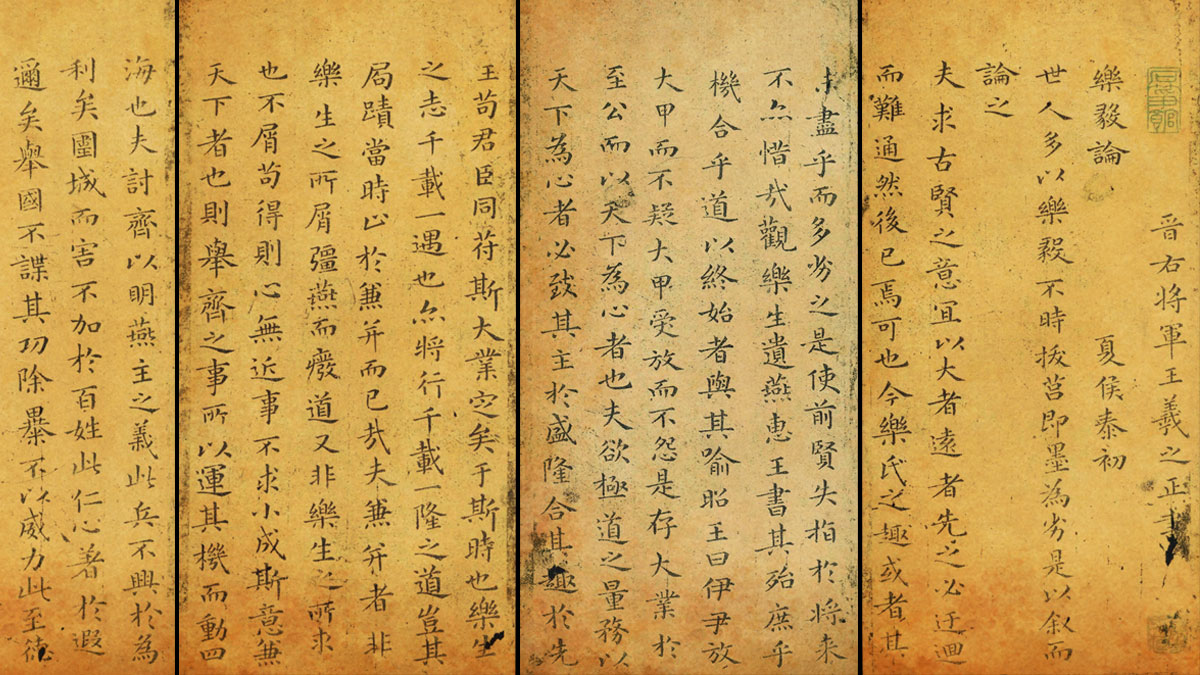 晋右将軍王羲之正書
樂毅論 夏侯泰初
世人多以樂毅不時拔莒即墨為劣是以叙而
論之
夫求古賢之意宜以大者遠者先之必迂迴
而難通然後已焉可也今樂氏之趣或者其
未盡乎而多劣之是使前賢失指於将来
不亦惜哉觀樂生遺燕惠王書其殆庶乎
機合乎道以終始者與其喻昭王曰伊尹放
大甲而不疑大甲受放而不怨是存大業於
至公而以天下為心者也夫欲極道之量務以
天下為心者必致其主於盛隆合其趣於先
王苟君臣同苻斯大業定矣于斯時也樂生
之志千載一遇也亦将行千載一隆之道豈其
局蹟當時止於兼并而已哉夫兼并者非
樂生之所屑彊燕而癈道又非樂生之所求
也不屑苟得則心無近事不求小成斯意兼
天下者也則舉齊之事所以運其機而動四
海也夫討齊以明燕主之義此兵不興於為
利矣圍城而害不加於百姓此仁心著於遐
邇矣舉國不謀其功除暴不以威力此至德